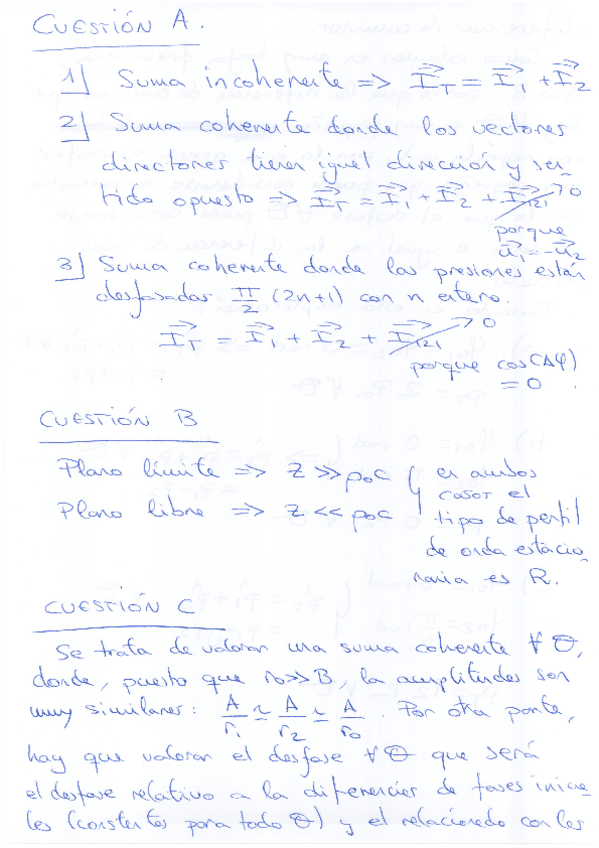 CUESTIÓN A.
1) Suma incoherente => I⃗_T = I⃗_1 + I⃗_2
2) Suma coherente donde los vectores
directores tienen igual dirección y sen
tido opuesto => I⃗_T = I⃗_1 + I⃗_2 + I⃗_121 → 0
porque
u⃗_1 = -u⃗_2
3) Suma coherente donde las presiones están
desfasadas π/2 (2n+1) con n entero.
I⃗_T = I⃗_1 + I⃗_2 + I⃗_121 → 0
porque cos(Δφ)
= 0.
CUESTIÓN B
Plano límite => Z >> ρ_0 c
Plano libre => Z << ρ_0 c
en ambos
casos el
tipo de perfil
de onda estacio
naria es R.
CUESTIÓN C
Se trata de valorar una suma coherente ∀ θ,
donde, puesto que r_0 >> B, la amplitudes son
muy similares: A/r_1 ≃ A/r_2 ≃ A/r_0. Por otra parte,
hay que valorar el desfase ∀ θ que será
el desfase relativo a la diferencia de fases inicia
les (constantes para todo θ) y el relacionado con las